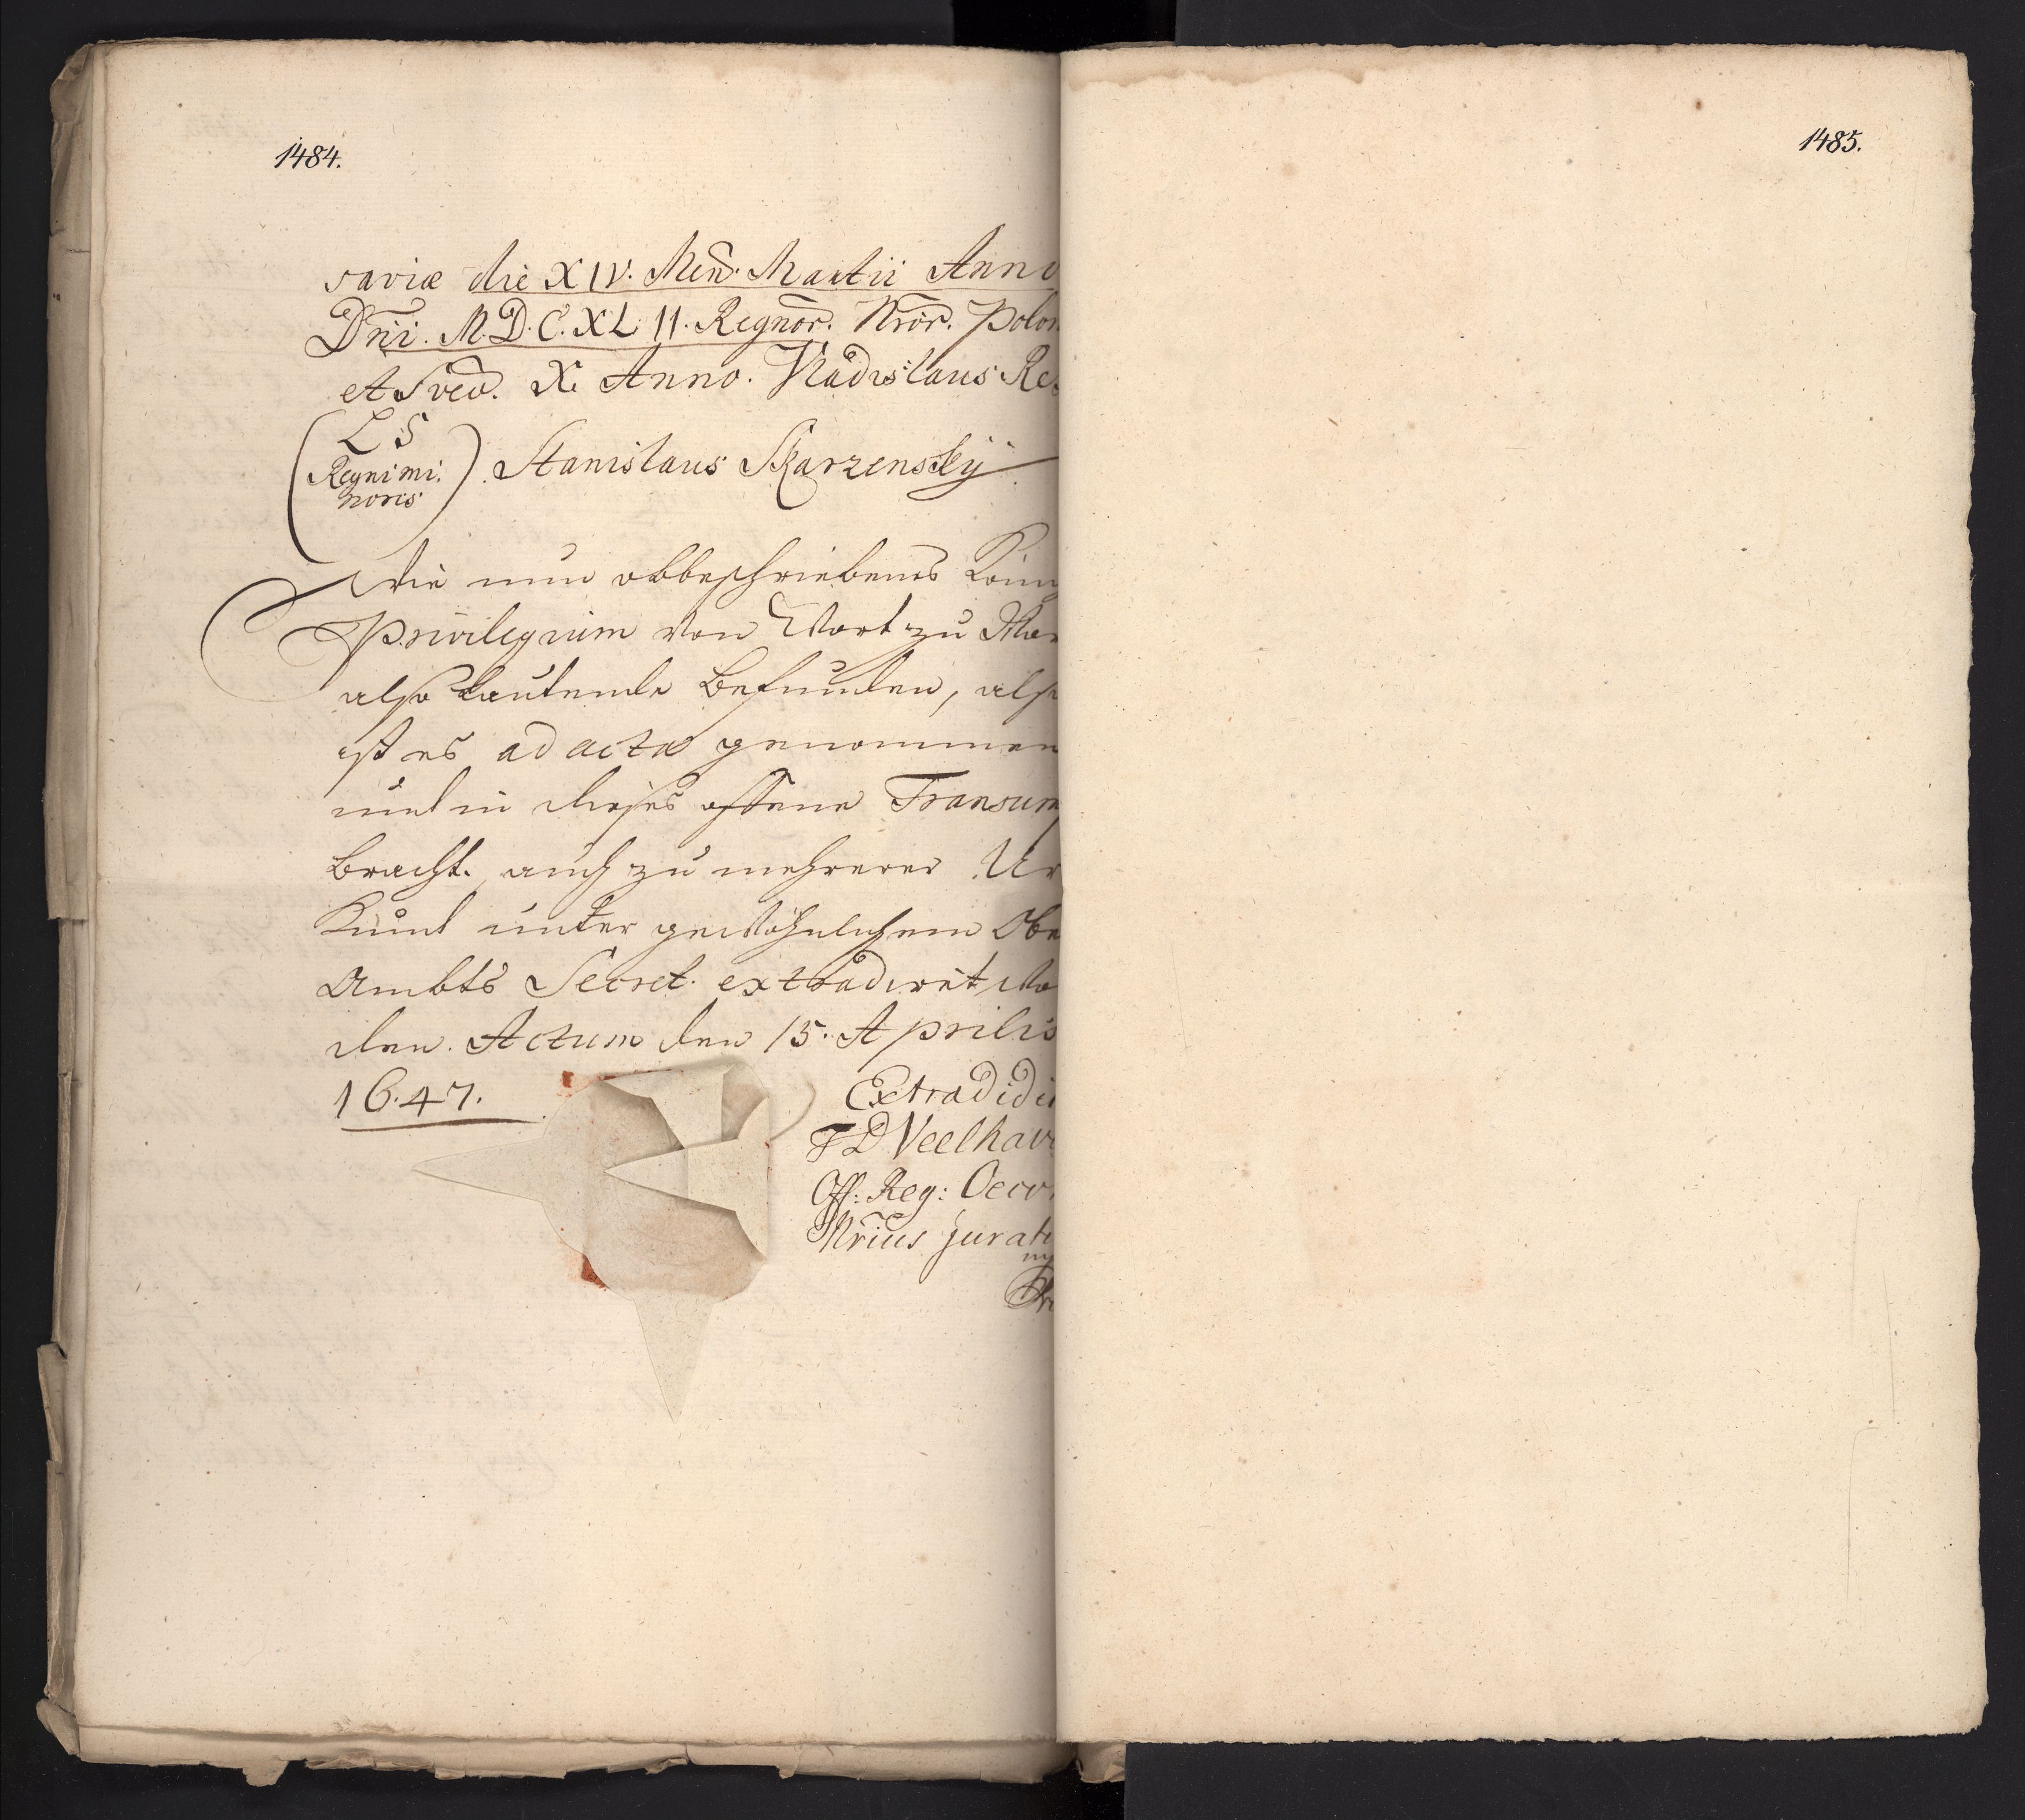 1484.
saviæ die XIV. Men̄. Martii Anno
Dn̄i. M.D.C.XL II. Regnor̄. Nr̄or̄. Polon
et Svec̄. X. Anno. Vladislaus Re
L S
Regni mi
noris
Stanislaus Skarzensky
Wie nun obbeschriebenes König
Privilegium von Wort zu Wor
also lautende befunden, also
ist es ad acta genommen
und in dieses offene Transum
bracht. auch zu mehrerer Ur
Kund unter gewöhnlichem Obe
Ambts Secret. extradiret wo
den. Actum den 15. Aprilis
1647.
Extradidi
F D Veelhav
Off: Reg: Oeco
Nr̄ius jurat
mp
1485.